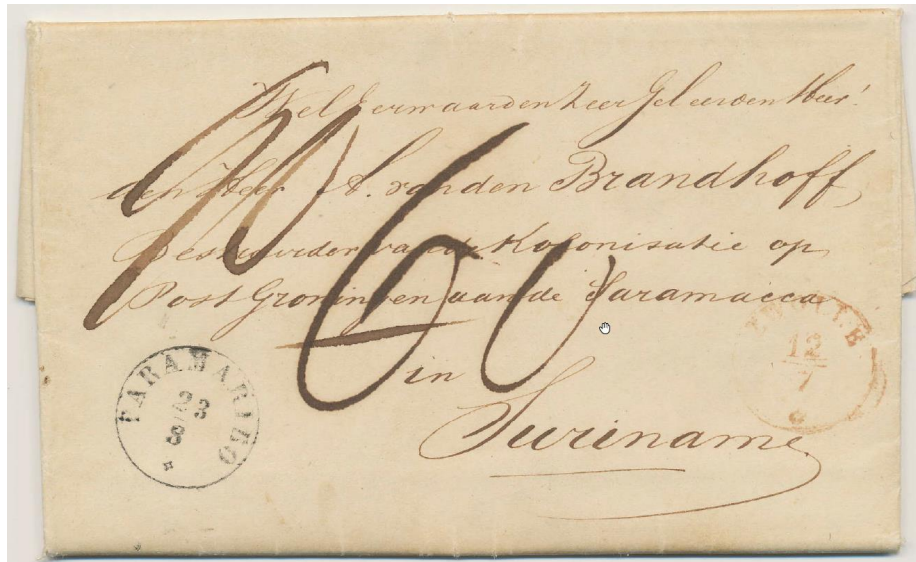 Wel Eerwaarden Zeer Geleerden Heer!
den Heer A. van den Brandhoff
Bestuurder van de Kolonisatie op
Post Groningen aan de Saramacca
in
Suriname.
60
PARAMARIBO
23
8
ZWOLLE
12
7